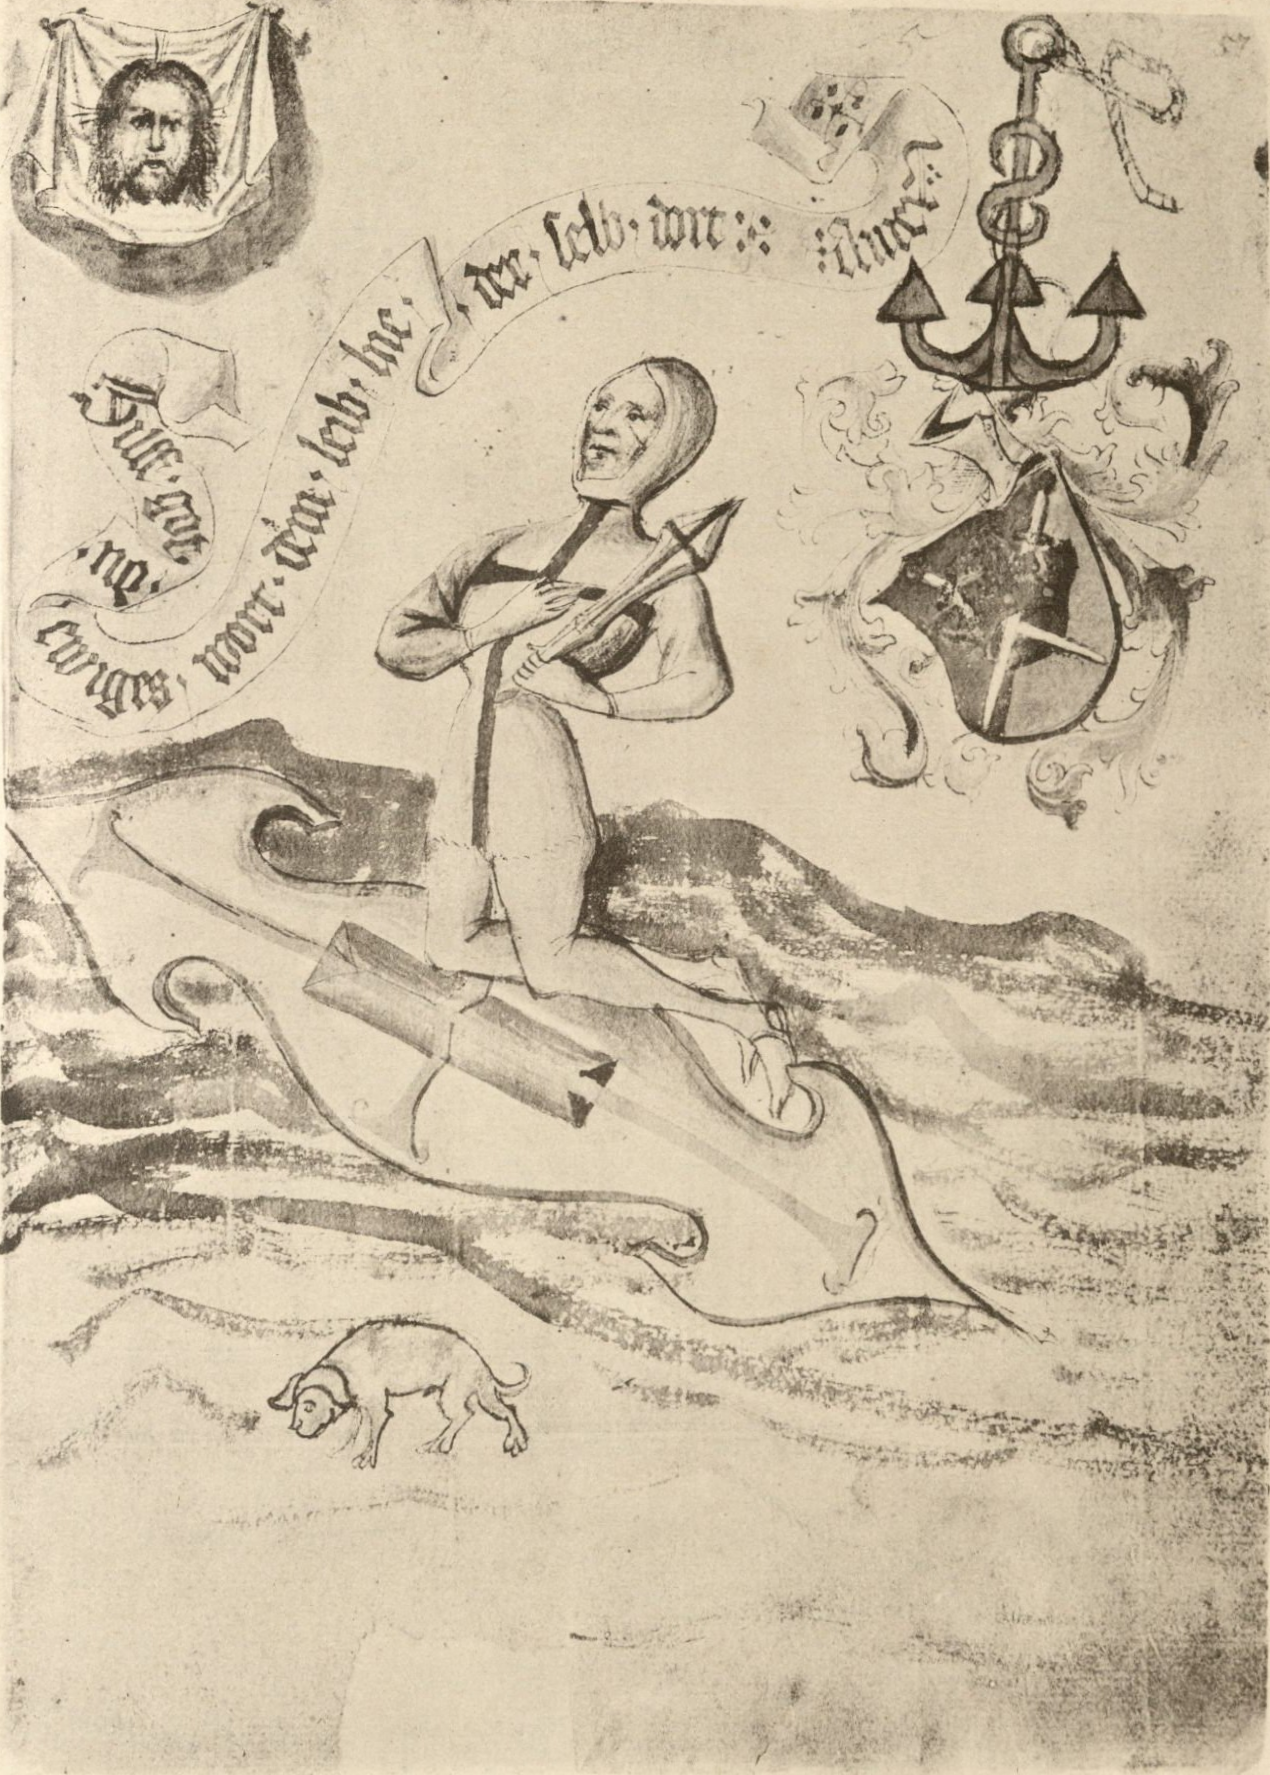 Hilff · got
· du ·
ewiges · wort · dem · leib · hie ·
· der · selb · dort